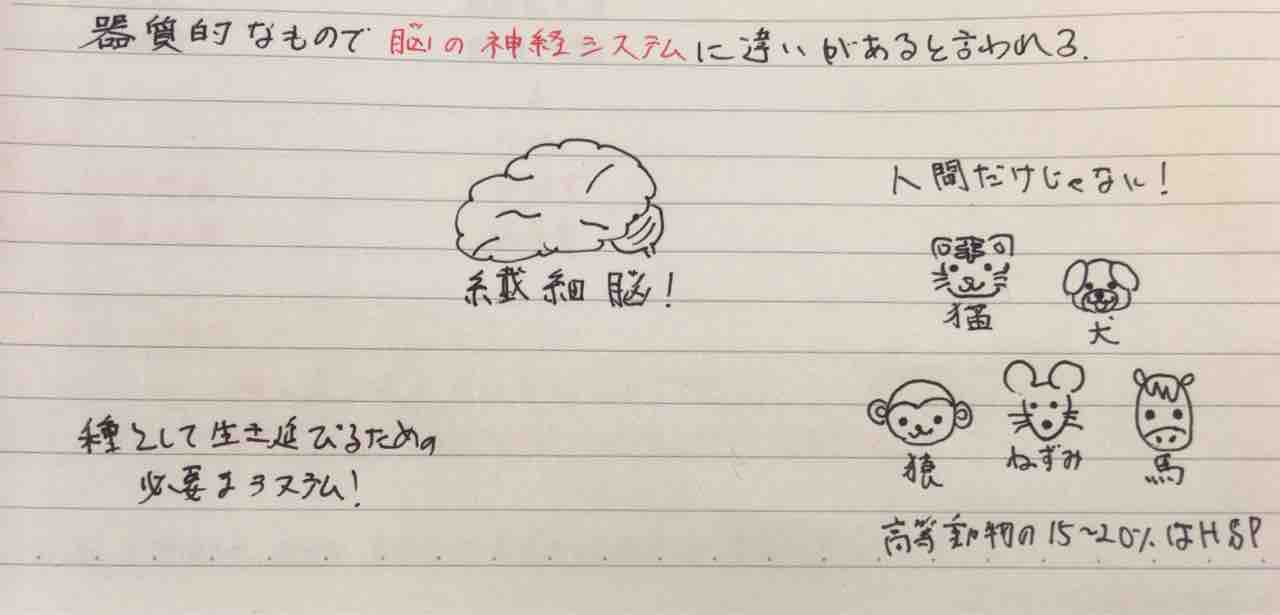 器質的なもので脳の神経システムに違いがあると言われる.
人間だけじゃない!
繊細脳!
猫
犬
猿
ねずみ
馬
種として生き延びるための
必要なシステム!
高等動物の15~20%はHSP